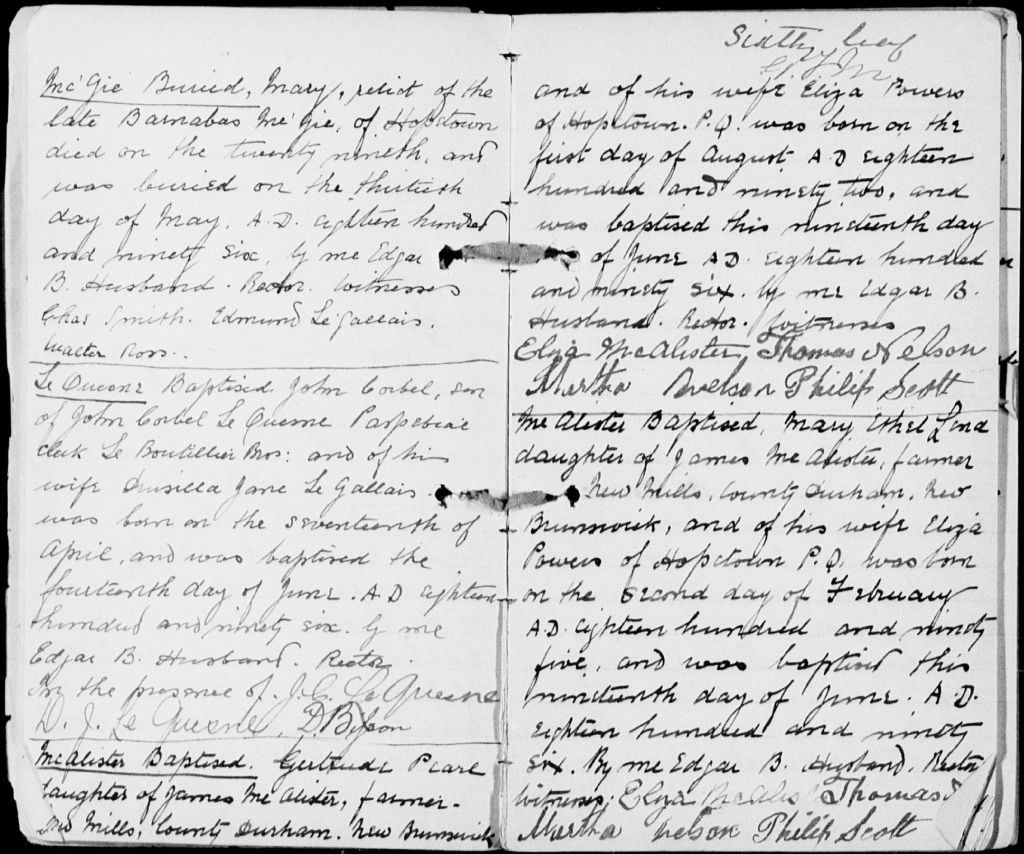 Mc'Gie Buried, Mary, relict of the
late Barnabas Mc'Gie, of Hopetown
died on the twenty nineth, and
was buried on the thirtieth
day of May, A.D. eighteen hundred
and ninety six, by me Edgar
B. Husband. Rector. Witnesses
Chas Smith. Edmund LeGallais.
Walter Ross..
Le Quesne Baptised John Corbel, son
of John Corbel Le Quesne Paspebiac
clerk Le Boutillier Bros: and of his
wife Drusilla Jane Le Gallais.
was born on the seventeenth of
April, and was baptised the
fourteenth day of June. A.D eighteen
hundred and ninety six. by me
Edgar B. Husband. Rector.
In the presence of. J.C. Le Quesne
D. J. Le Quesne, D. Bisson
McAlister Baptised. Gertrude Pearl
daughter of James McAlister, farmer.
New Mills, County Durham. New Brunswick
Sixth leaf
and of his wife Eliza Powers
of Hopetown. P.Q. was born on the
first day of August A.D eighteen
hundred and ninety two, and
was baptised this nineteenth day
of June A.D. eighteen hundred
and ninety six. by me Edgar B.
Husband. Rector. Witnesses
Eliza McAlister, Thomas Nelson
Martha Nelson Philip Scott
McAlister Baptised, Mary Ethel Lena
daughter of James McAlister, farmer
New Mills, County Durham, New
Brunswick, and of his wife Eliza
Powers of Hopetown P.Q. was born
on the second day of February
A.D. eighteen hundred and ninety
five, and was baptised this
nineteenth day of June. A.D.
Eighteen hundred and ninety
six. By me Edgar B. Husband. Rector
Witness; Eliza McAlis Thomas
Martha Nelson Philip Scott